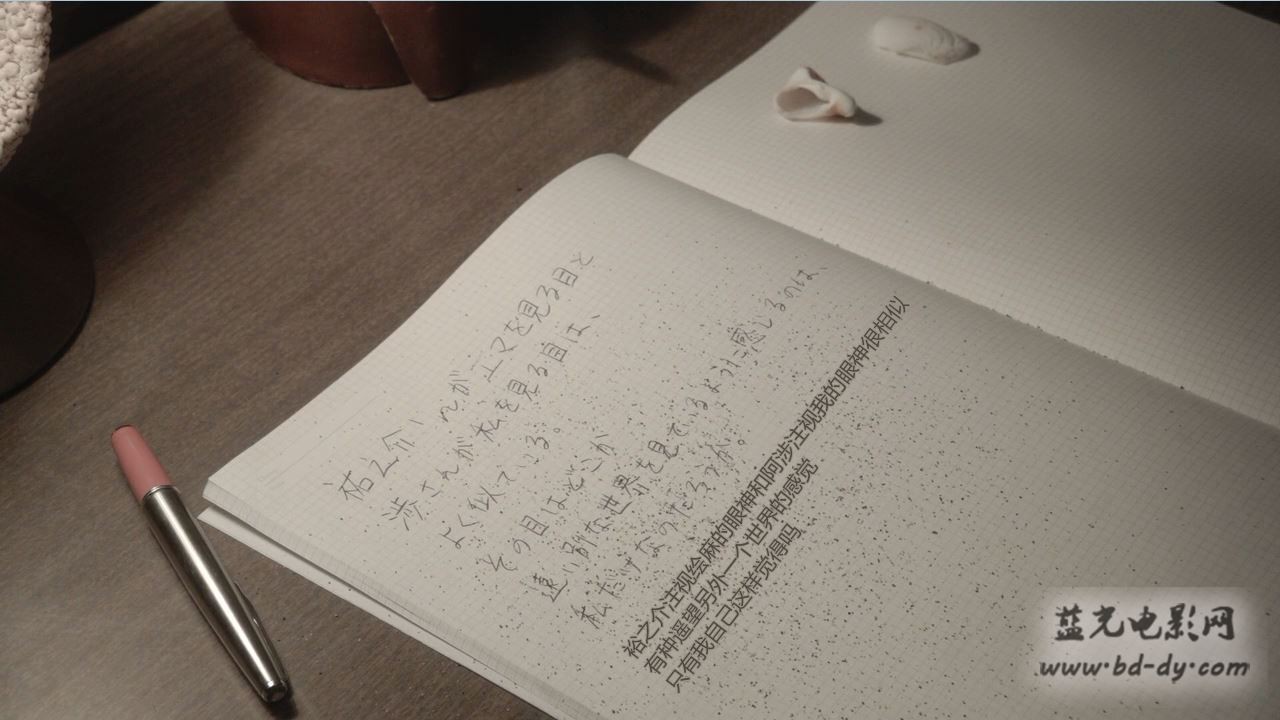 祐之介くんがエマを見る目と
渉さんが私を見る目は、
よく似ている。
その目はどこか
遠い別な世界を見ているように感じるのは、
私だけなのだろうか。
裕之介注视绘麻的眼神和阿涉注视我的眼神很相似
有种遥望另外一个世界的感觉
只有我自己这样觉得吗
蓝光电影网
www.bd-dy.com